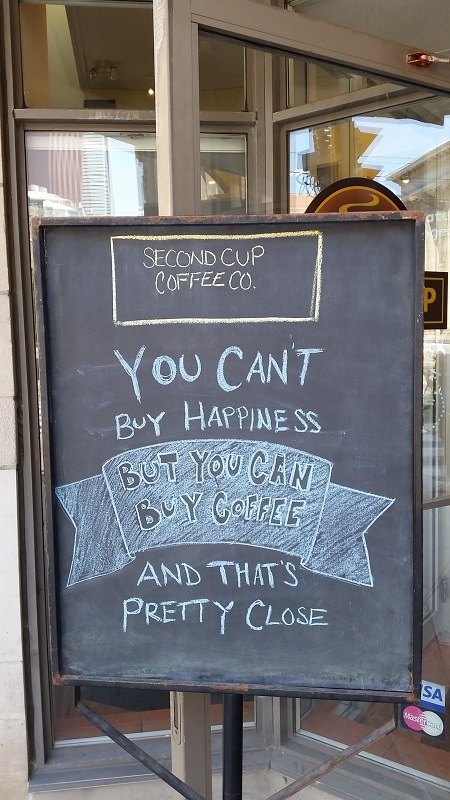 SECOND CUP
COFFEE CO.
YOU CAN'T
BUY HAPPINESS
BUT YOU CAN
BUY COFFEE
AND THAT'S
PRETTY CLOSE
P
VISA
MasterCard